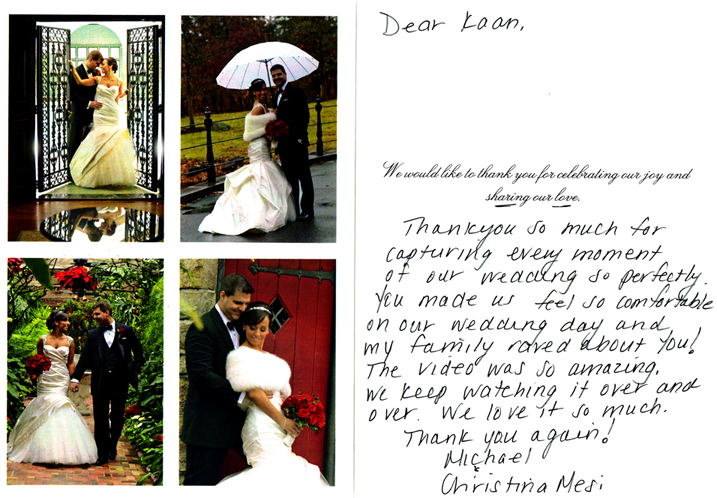 Dear Kaan,
We would like to thank you for celebrating our joy and
sharing our love.
Thankyou so much for
capturing every moment
of our wedding so perfectly.
You made us feel so comfortable
on our wedding day and
my family raved about you!
The video was so amazing,
we keep watching it over and
over. We love it so much.
Thank you again!
Michael
&
Christina Mesi